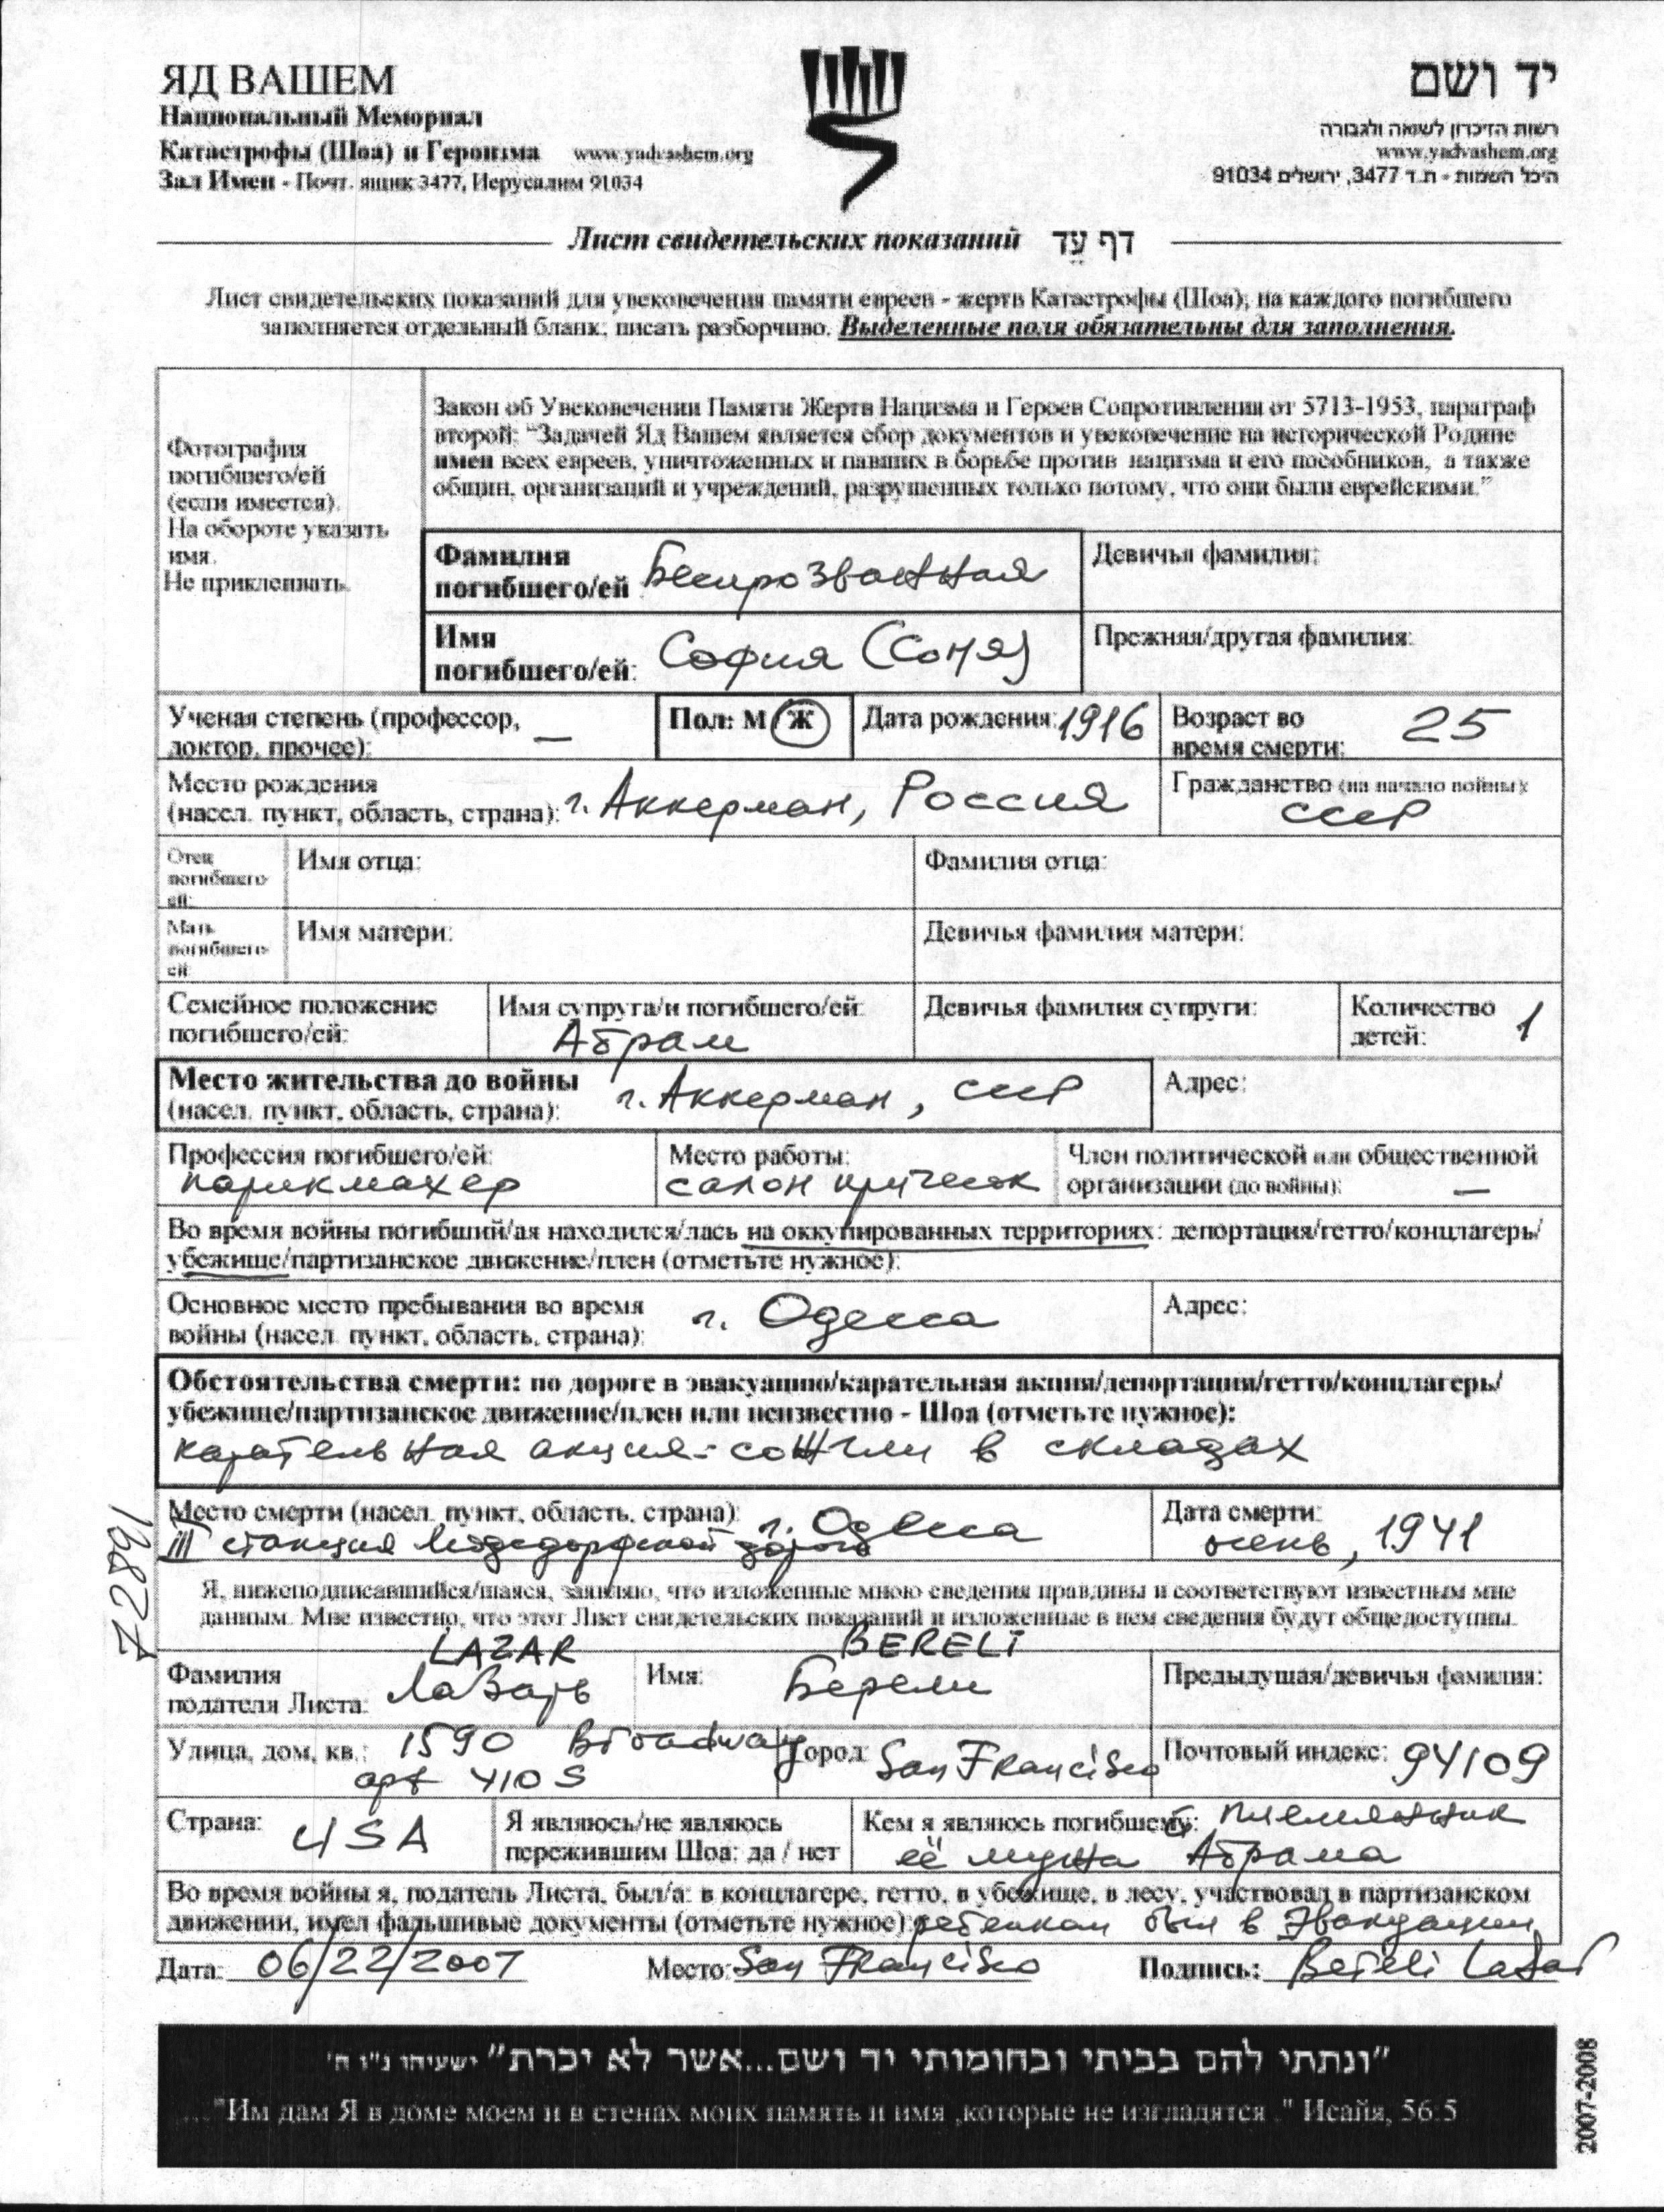 ЯД ВАШЕМ
Национальный Мемориал
Катастрофы (Шоа) и Героизма www.yadvashem.org
Зал Имен - Почт. ящик 3477, Иерусалим 91034
יד ושם
רשות הזיכרון לשואה ולגבורה
www.yadvashem.org
היכל השמות - ת.ד 3477, ירושלים 91034
Лист свидетельских показаний דף עֵד
Лист свидетельских показаний для увековечения памяти евреев - жертв Катастрофы (Шоа); на каждого погибшего
заполняется отдельный бланк; писать разборчиво. Выделенные поля обязательны для заполнения.
Фотография
погибшего/ей
(если имеется).
На обороте указать
имя.
Не приклеивать.
Закон об Увековечении Памяти Жертв Нацизма и Героев Сопротивления от 5713-1953, параграф
второй: "Задачей Яд Вашем является сбор документов и увековечение на исторической Родине
имен всех евреев, уничтоженных и павших в борьбе против нацизма и его пособников, а также
общин, организаций и учреждений, разрушенных только потому, что они были еврейскими."
Фамилия
погибшего/ей Беспрозванная
Девичья фамилия:
Имя
погибшего/ей: София (Соня)
Прежняя/другая фамилия:
Ученая степень (профессор,
доктор, прочее): —
Пол: М Ж
Дата рождения: 1916
Возраст во
время смерти: 25
Место рождения
(насел. пункт, область, страна): г. Аккерман, Россия
Гражданство (на начало войны):
СССР
Отец
погибшего
ей:
Имя отца:
Фамилия отца:
Мать
погибшего
ей
Имя матери:
Девичья фамилия матери:
Семейное положение
погибшего/ей:
Имя супруга/и погибшего/ей:
Абрам
Девичья фамилия супруги:
Количество
детей: 1
Место жительства до войны
(насел. пункт, область, страна): г. Аккерман, СССР
Адрес:
Профессия погибшего/ей:
парикмахер
Место работы:
салон причесок
Член политической или общественной
организации (до войны): —
Во время войны погибший/ая находился/лась на оккупированных территориях: депортация/гетто/концлагерь/
убежище/партизанское движение/плен (отметьте нужное):
Основное место пребывания во время
войны (насел. пункт, область, страна): г. Одесса
Адрес:
Обстоятельства смерти: по дороге в эвакуацию/карательная акция/депортация/гетто/концлагерь/
убежище/партизанское движение/плен или неизвестно - Шоа (отметьте нужное):
карательная акция - сожгли в складах
Место смерти (насел. пункт, область, страна): г. Одесса
III станция Люсдорфской дороги
Дата смерти:
осень, 1941
72891
Я, нижеподписавшийся/шаяся, заявляю, что изложенные мною сведения правдивы и соответствуют известным мне
данным. Мне известно, что этот Лист свидетельских показаний и изложенные в нем сведения будут общедоступны.
LAZAR BERELI
Фамилия
подателя Листа: Лазарь
Имя: Берели
Предыдущая/девичья фамилия:
Улица, дом, кв.: 1590 Broadway
apt 410 S
Город: San Francisco
Почтовый индекс: 94109
Страна: USA
Я являюсь/не являюсь
пережившим Шоа: да / нет
Кем я являюсь погибшему: племянник
её мужа Абрама
Во время войны я, податель Листа, был/а: в концлагере, гетто, в убежище, в лесу, участвовал в партизанском
движении, имел фальшивые документы (отметьте нужное): ребенком был в эвакуации
Дата: 06/22/2007 Место: San Francisco Подпись: Bereli Lazar
"ונתתי להם בביתי ובחומותי יד ושם...אשר לא יכרת" ישעיהו נ"ו ה'
..."Им дам Я в доме моем и в стенах моих память и имя ,которые не изгладятся ." Исайя, 56:5
2007-2008